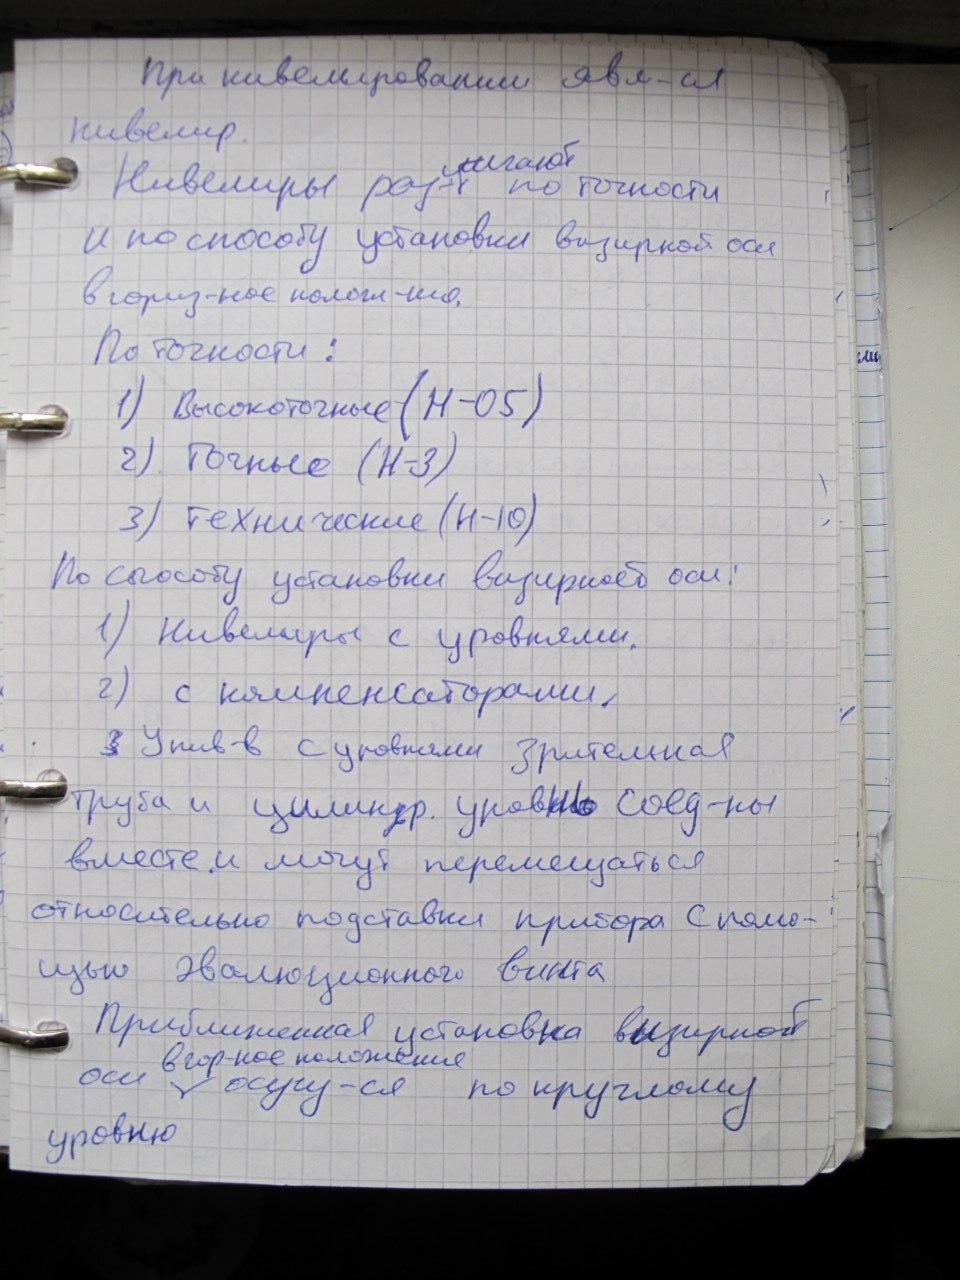 При нивелировании явл-ся
нивелир.
Нивелиры раз-т лигают по точности
и по способу установки визирной оси
в гориз-ное полож-ние.
По точности:
1) Высокоточные (Н-05)
2) Точные (Н-3)
3) Технические (Н-10)
По способу установки визирной оси:
1) Нивелиры с уровнями.
2) с компенсаторами.
У нив-в с уровнями зрительная
труба и цилиндр. уровнь соед-ны
вместе и могут перемещаться
относительно подставки прибора с помо-
щью эвалюционного винта
Приближенная установка визирной
в гор-ное положение
оси осущ-ся по круглому
уровню